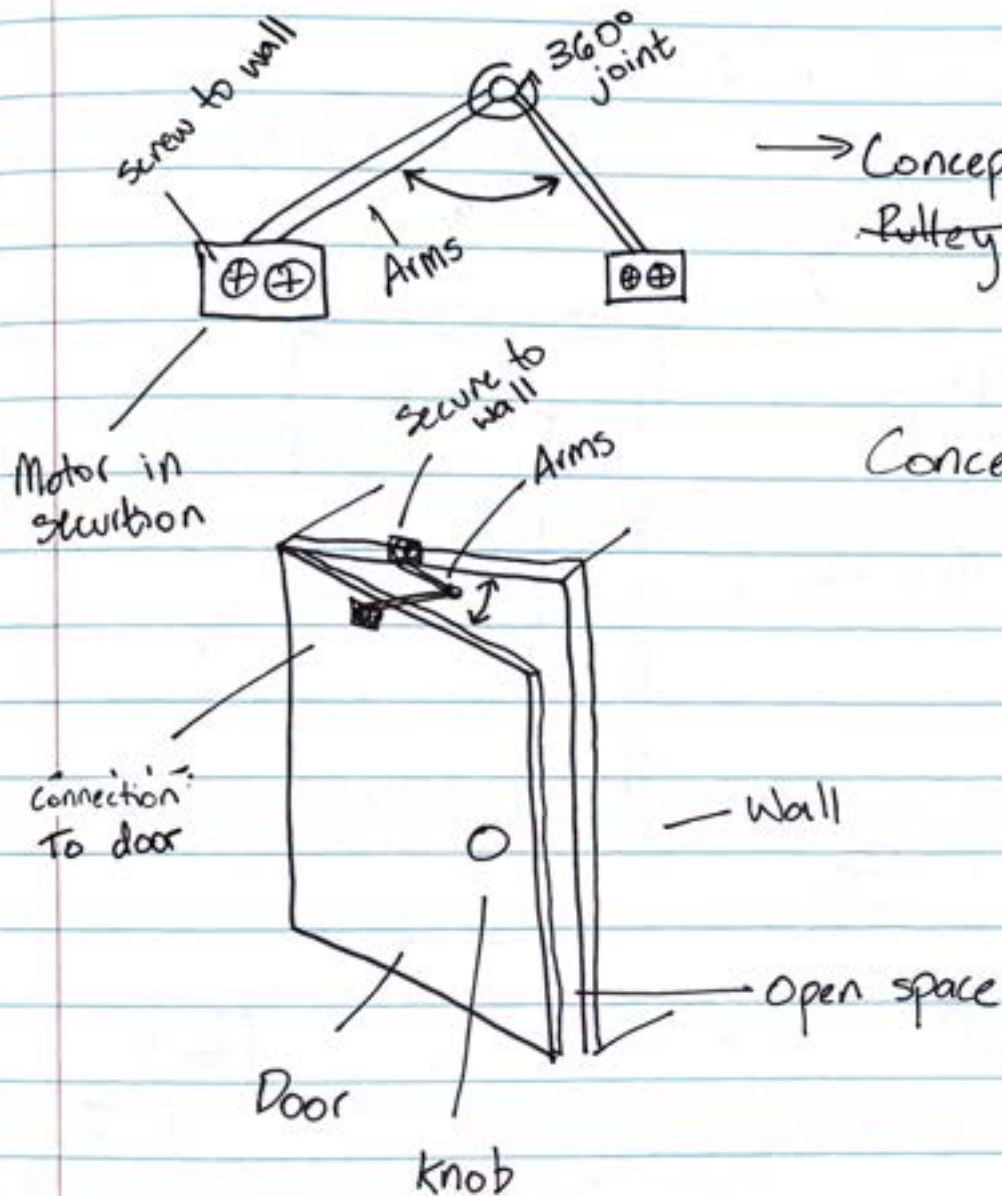 screw to wall
360°
joint
→ Concep
Pulley
Arms
Motor in
secure to
wall
Arms
Conce
connection
To door
Wall
Open space
Door
knob